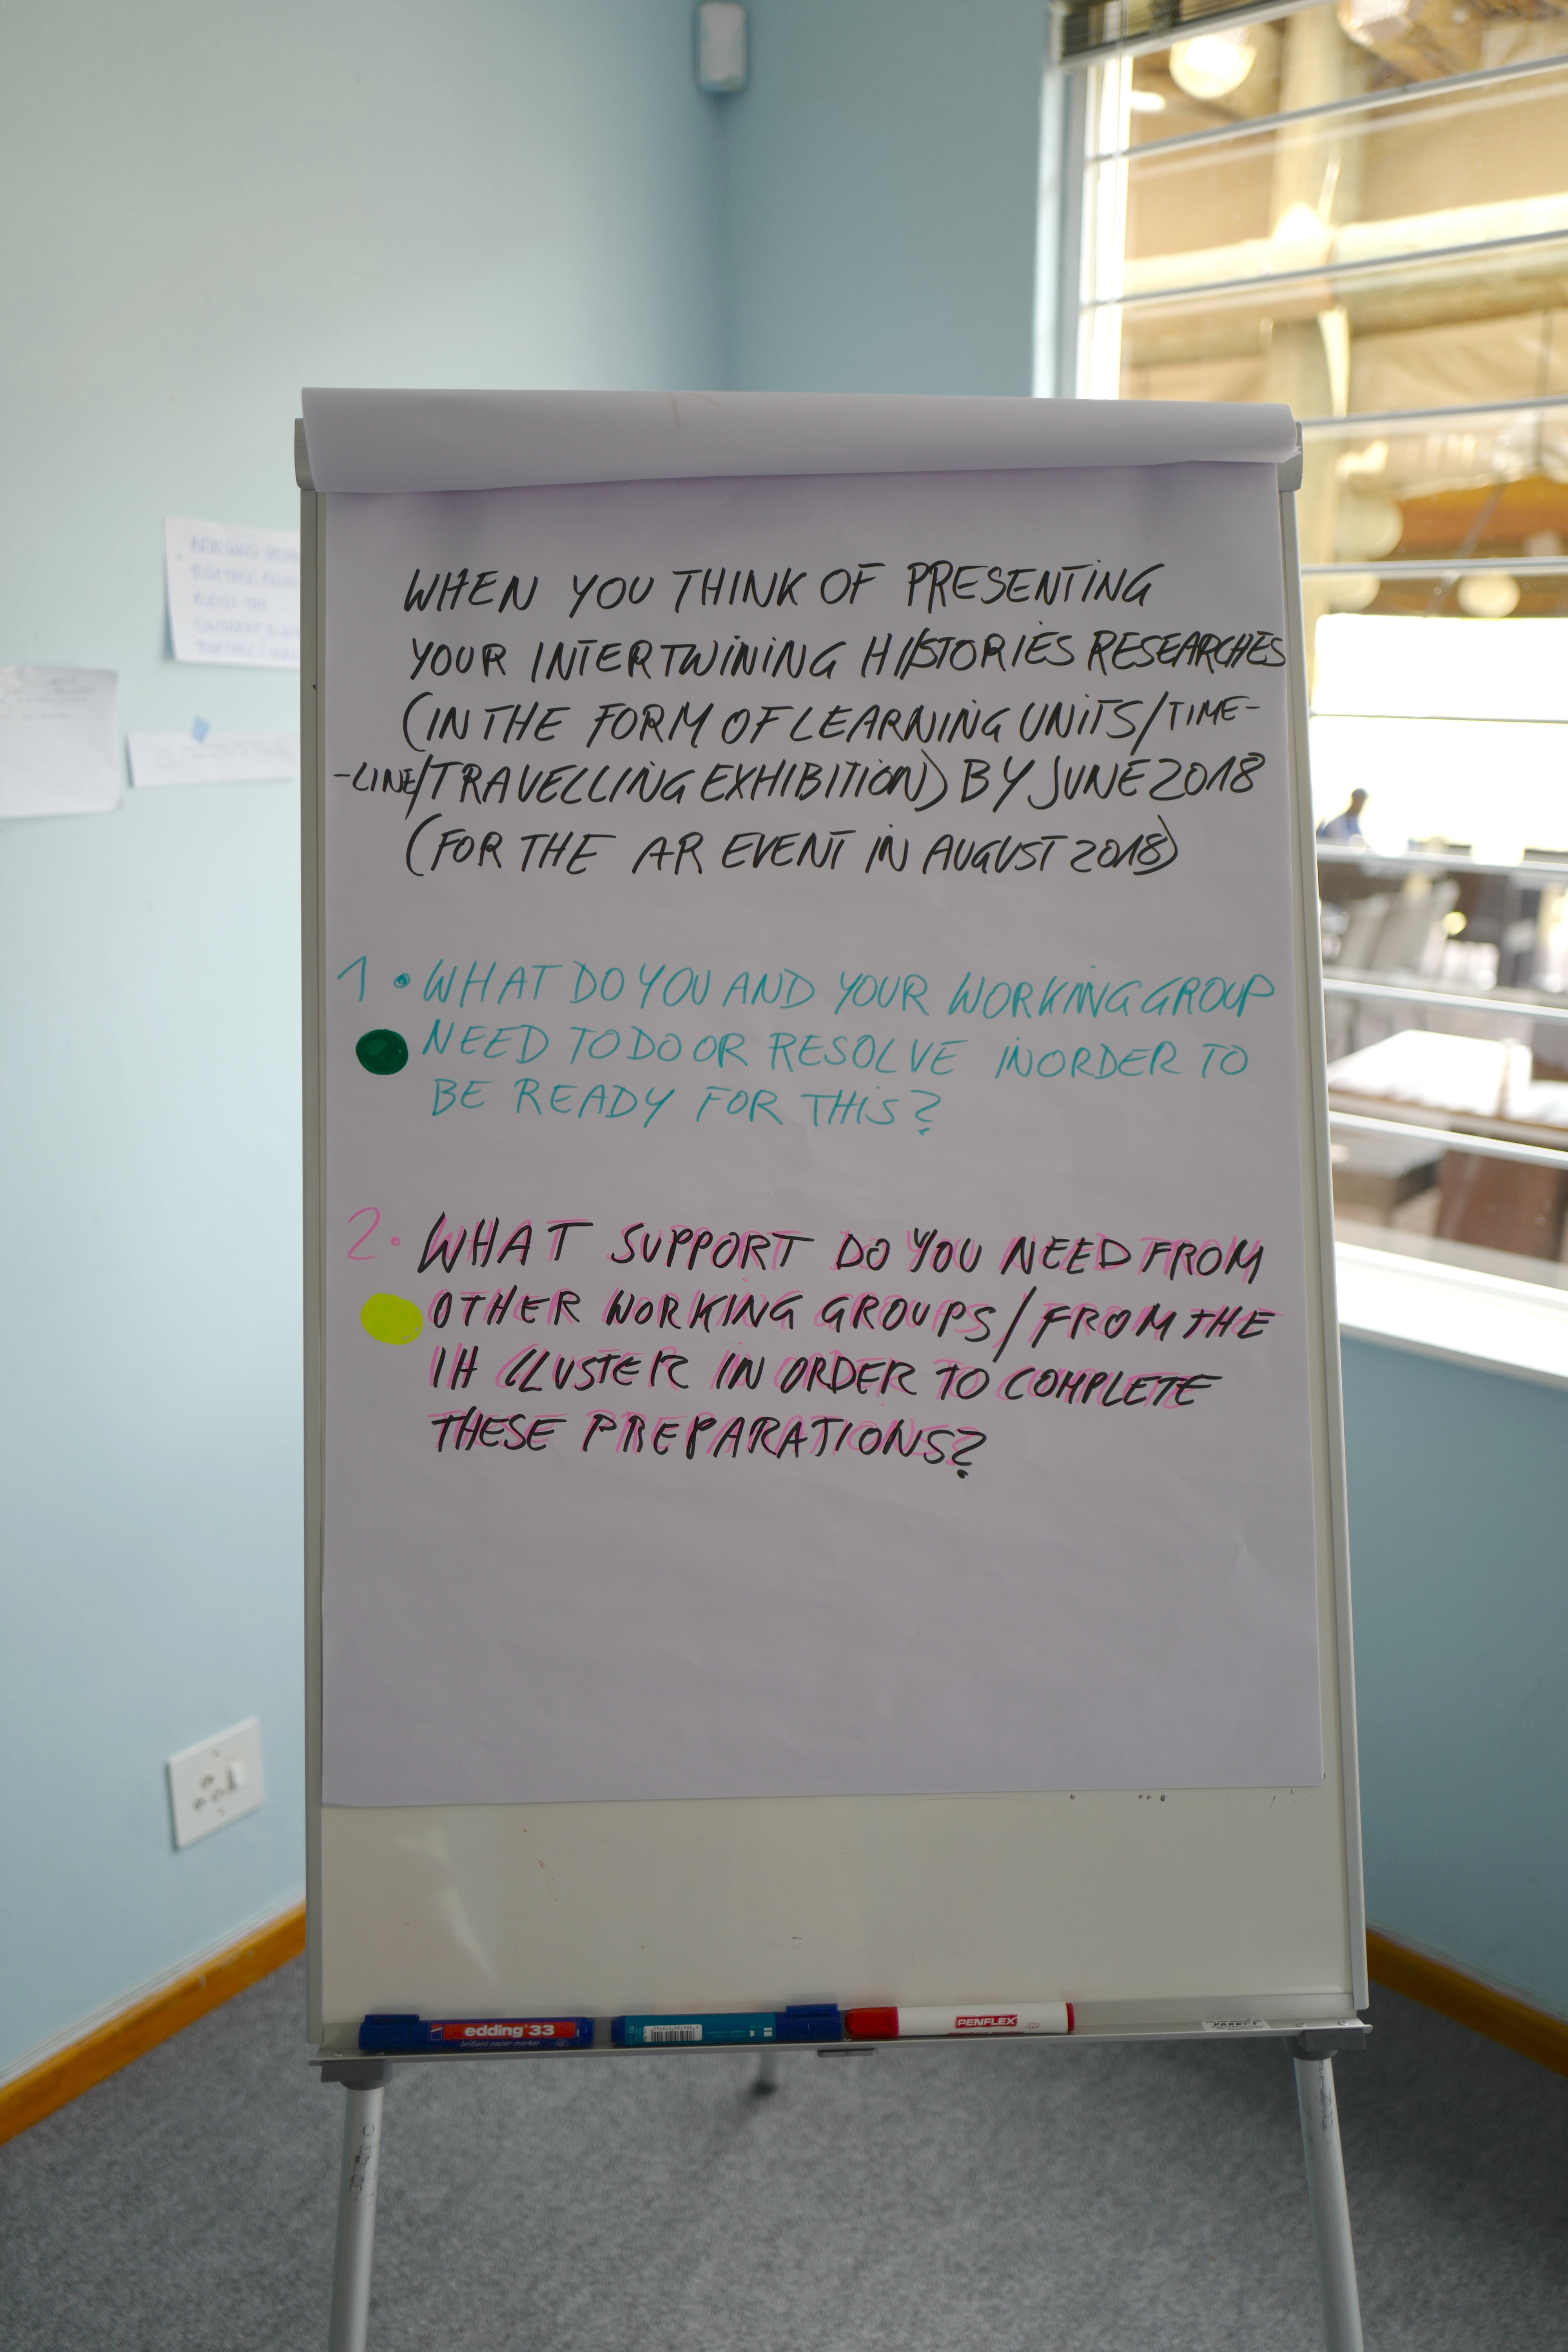 WHEN YOU THINK OF PRESENTING
YOUR INTERTWINING HI/STORIES RESEARCHES
(IN THE FORM OF LEARNING UNITS/TIME-
-LINE/TRAVELLING EXHIBITION) BY JUNE 2018
(FOR THE AR EVENT IN AUGUST 2018)
1. WHAT DO YOU AND YOUR WORKING GROUP
NEED TO DO OR RESOLVE IN ORDER TO
BE READY FOR THIS?
2. WHAT SUPPORT DO YOU NEED FROM
OTHER WORKING GROUPS/FROM THE
IH CLUSTER IN ORDER TO COMPLETE
THESE PREPARATIONS?
BRINGING
TOGETHER
ACROSS THE
edding 33
brilliant paper marker
PENFLEX